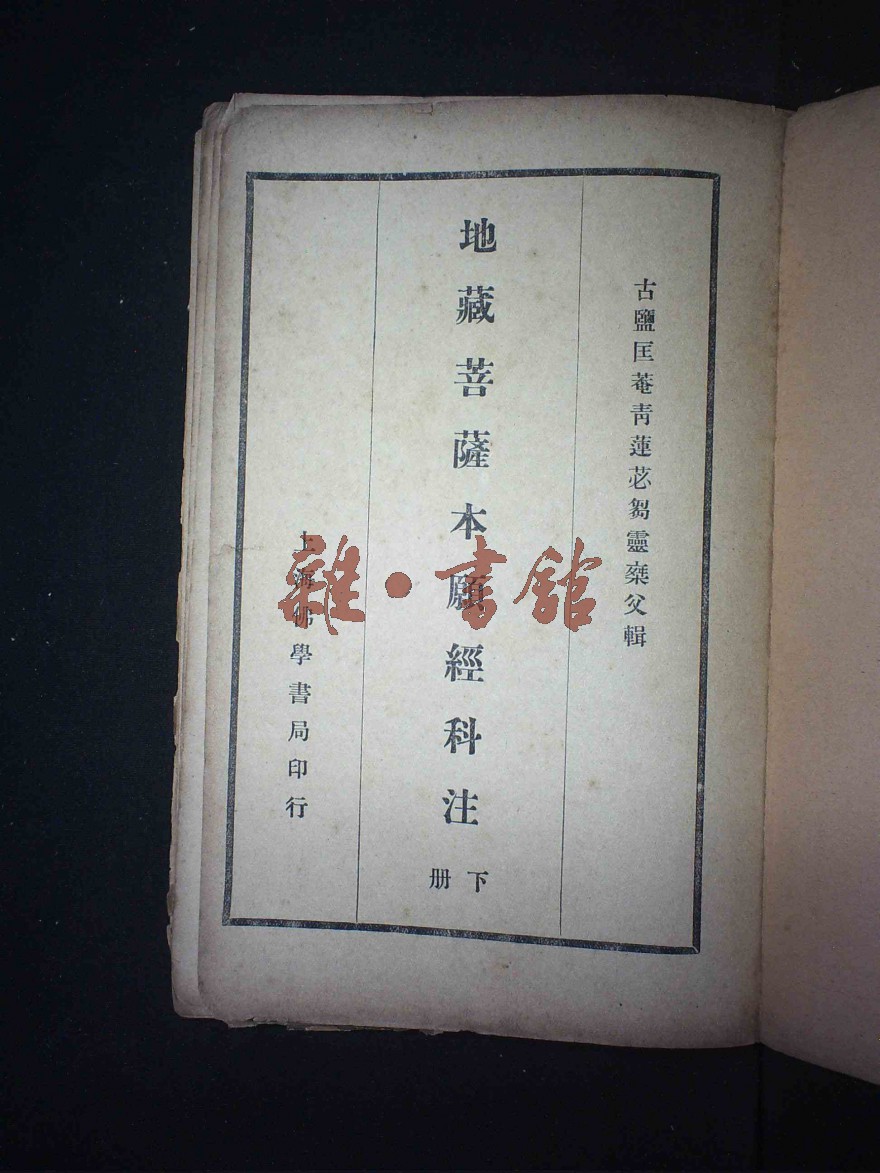 古鹽匡菴青蓮苾芻靈椉父輯
地藏菩薩本願經科注
下册
上海佛學書局印行
雜·書館